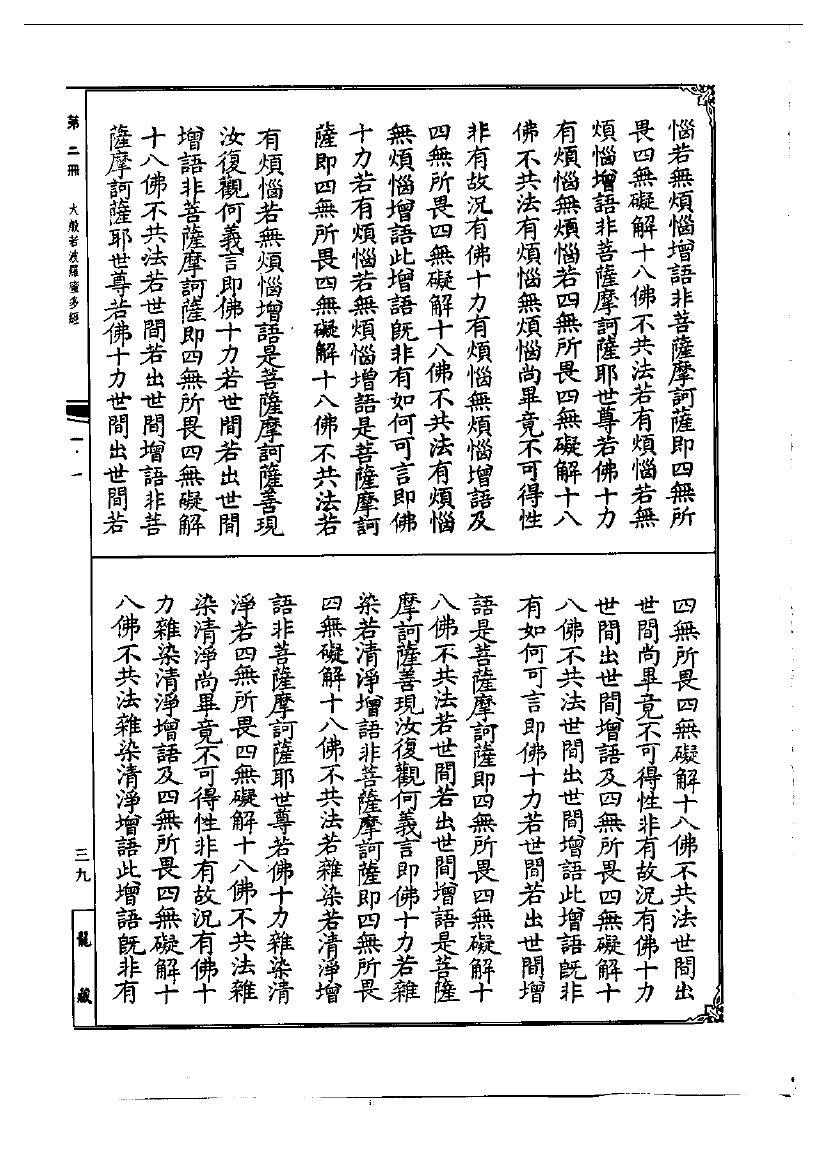 惱若無煩惱增語非菩薩摩訶薩即四無所
畏四無礙解十八佛不共法若有煩惱若無
煩惱增語非菩薩摩訶薩耶世尊若佛十力
有煩惱無煩惱若四無所畏四無礙解十八
佛不共法有煩惱無煩惱尚畢竟不可得性
非有故況有佛十力有煩惱無煩惱增語及
四無所畏四無礙解十八佛不共法有煩惱
無煩惱增語此增語旣非有如何可言即佛
十力若有煩惱若無煩惱增語是菩薩摩訶
薩即四無所畏四無礙解十八佛不共法若
有煩惱若無煩惱增語是菩薩摩訶薩善現
汝復觀何義言即佛十力若世間若出世間
增語非菩薩摩訶薩即四無所畏四無礙解
十八佛不共法若世間若出世間增語非菩
薩摩訶薩耶世尊若佛十力世間出世間若
四無所畏四無礙解十八佛不共法世間出
世間尚畢竟不可得性非有故況有佛十力
世間出世間增語及四無所畏四無礙解十
八佛不共法世間出世間增語此增語旣非
有如何可言即佛十力若世間若出世間增
語是菩薩摩訶薩即四無所畏四無礙解十
八佛不共法若世間若出世間增語是菩薩
摩訶薩善現汝復觀何義言即佛十力若雜
染若清淨增語非菩薩摩訶薩即四無所畏
四無礙解十八佛不共法若雜染若清淨增
語非菩薩摩訶薩耶世尊若佛十力雜染清
淨若四無所畏四無礙解十八佛不共法雜
染清淨尚畢竟不可得性非有故況有佛十
力雜染清淨增語及四無所畏四無礙解十
八佛不共法雜染清淨增語此增語旣非有
第二冊 大般若波羅蜜多經
一·一
三九
龍藏